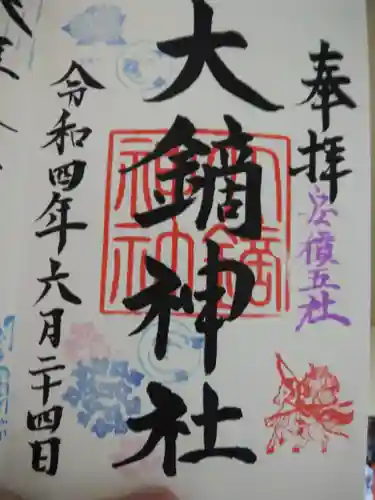 奉拝
安積五社
大鏑神社
令和四年六月二十四日